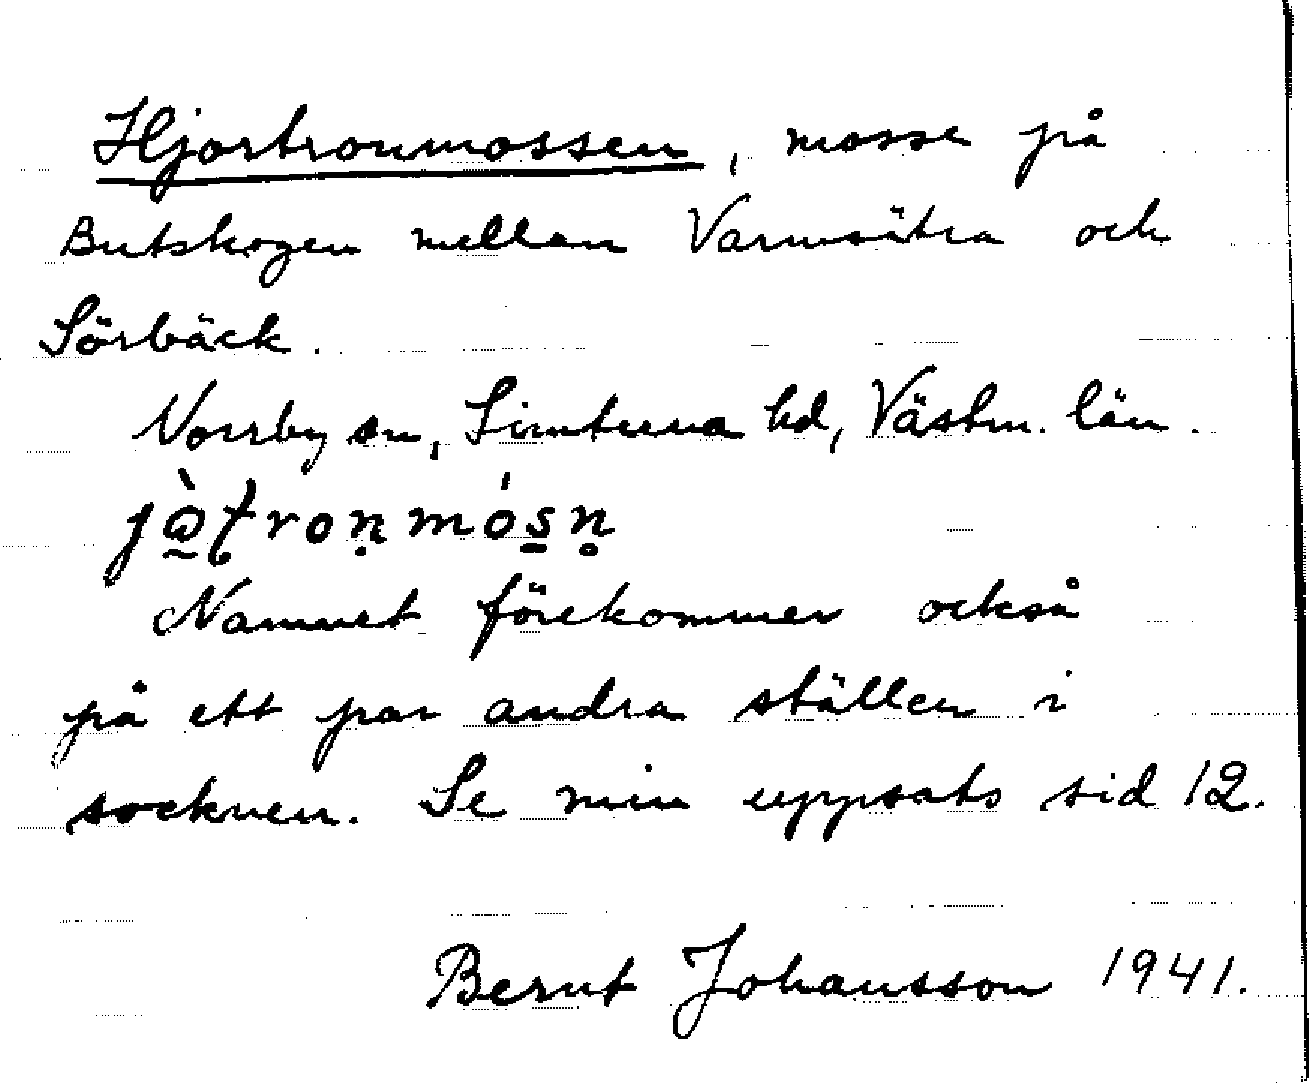 Hjortronmossen, mosse på
Butskogen mellan Varmsätra och
Sörbäck.
Norrby sn, Simtuna hd, Västm. län.
jòt̡roṇmós̱n̥
Namnet förekommer också
på ett par andra ställen i
socknen. Se min uppsats sid 12.
Bernt Johansson 1941.